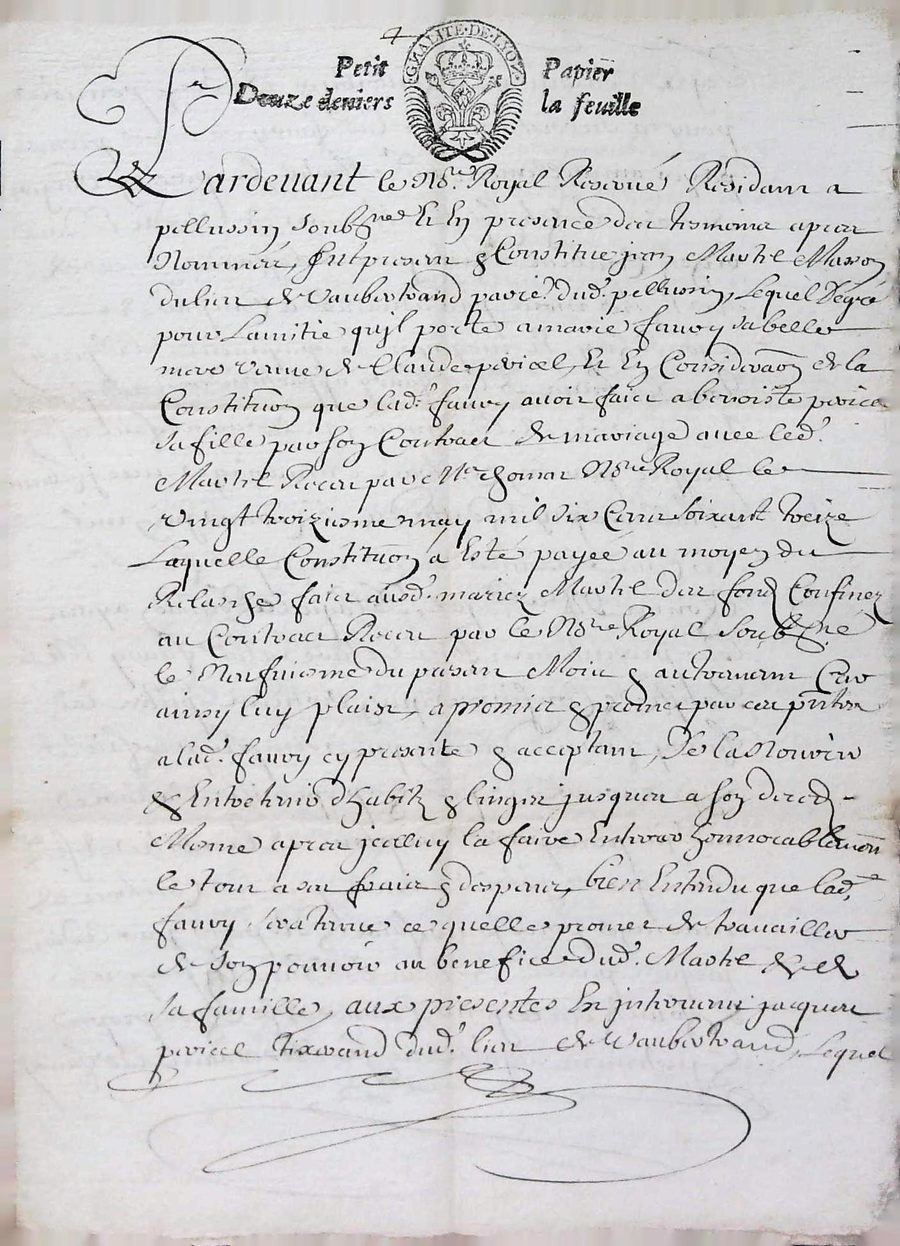 4
GNALITE·DE·LYON
Petit Papier
Douze deniers la feuille
Pardevant le Nore. Royal Reservé Residant a
pellussin soubsne et En presence des tesmoins apres
Nommés, fut presan & Constitue jean Martel Masson
du lieu de Vaubertrand parre. dud. pellussin, Lequel de gré
pour Lamitie quil porte a marie favoy sa belle
mere veuve de Claude periel, Et En Consideraon de la
Constituon que lad. favoy avoir faict a benoiste periel
sa fille par son Contract de mariage avec led.
Martel Receu par Me thomas Nore Royal le
vingt troiziesme may mil six Cens soixante treize
Laquelle Constituon a Esté payée au moyen du
Relasche faict ausd. mariez Martel des fonds Confinez
au Contract Receu par le Nore Royal soubsne
le Neufuiesme du presan Mois & autrement Car
ainsy luy plaist, a promis & promet par ces pntes
a lad. favoy cy presente & acceptant, de la Nourir
& Entretenir d'habitz & linges jusques a son deceds
Mesme apres jcelluy la faire Enterrer honnorablement
le tout a ses fraix & despens, bien Entendu que lade
favoy sera tenue ce quelle promet de travailler
de son pouvoir au benefice dud. Martel & de
sa famille, aux presentes En intervenu jacques
periel tixerand dud. lieu de Vaubertrand, Lequel